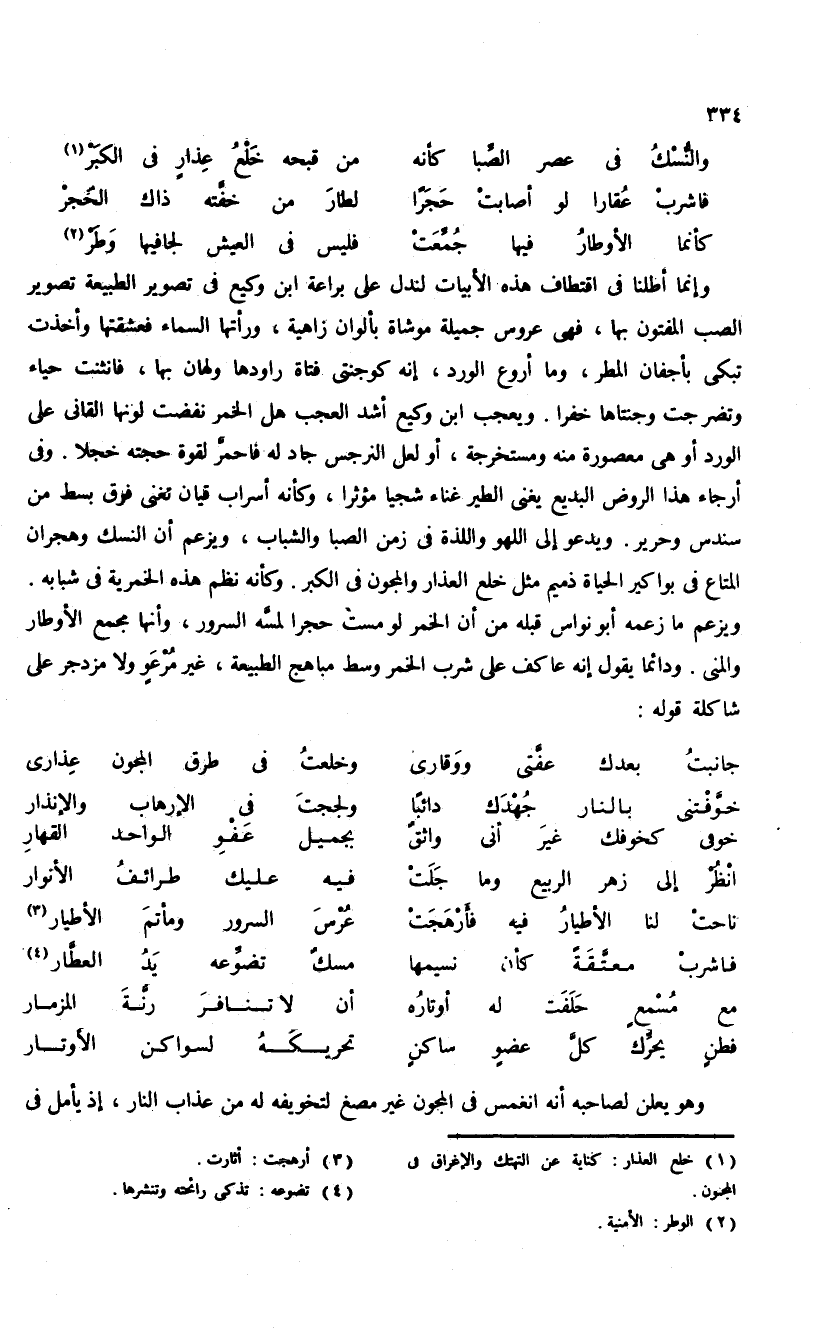 ٣٣٤
والنُّسْكُ فى عصر الصِّبا كأنه من قبحه خَلْعُ عِذارٍ فى الكَبَرْ(١)
فاشربْ عُقارا لو أصابتْ حَجَرًا لطارَ من خفَّته ذاك الحَجرْ
كأنما الأوطارُ فيها جُمِّعَتْ فليس فى العيش لجافيها وَطَرْ(٢)
وإنما أطلنا فى اقتطاف هذه الأبيات لندل على براعة ابن وكيع فى تصوير الطبيعة تصوير
الصب المفتون بها ، فهى عروس جميلة موشاة بألوان زاهية ، ورأتها السماء فعشقتها وأخذت
تبكى بأجفان المطر ، وما أروع الورد ، إنه كوجنتى فتاة راودها ولهان بها ، فانثنت حياء
وتضرجت وجنتاها خفرا . ويعجب ابن وكيع أشد العجب هل الخمر نفضت لونها القانى على
الورد أو هى معصورة منه ومستخرجة ، أو لعل النرجس جاد له فاحمرَّ لقوة حجته خجلا . وفى
أرجاء هذا الروض البديع يغنى الطير غناء شجيا مؤثرا ، وكأنه أسراب قيان تغنى فوق بسط من
سندس وحرير . ويدعو إلى اللهو واللذة فى زمن الصبا والشباب ، ويزعم أن النسك وهجران
المتاع فى بواكير الحياة ذميم مثل خلع العذار والمجون فى الكبر . وكأنه نظم هذه الخمرية فى شبابه .
ويزعم ما زعمه أبو نواس قبله من أن الخمر لو مستْ حجرا لمسَّه السرور ، وأنها مجمع الأوطار
والمنى . ودائما يقول إنه عاكف على شرب الخمر وسط مباهج الطبيعة ، غير مُرْعَوٍ ولا مزدجر على
شاكلة قوله :
جانبتُ بعدك عفَّتى ووَقارى وخلعتُ فى طرق المجون عِذارى
خوَّفْتنى بالنار جُهْدَك دائبًا ولججتَ فى الإرهاب والإنذار
خوفى كخوفك غيرَ أنى واثقٌ بجميل عَفْوِ الواحد القهارِ
انْظُرْ إلى زهر الربيع وما جَلَتْ فيه عليك طرائفُ الأنوار
ناحتْ لنا الأطيارُ فيه فأَرْهَجَتْ عُرْسَ السرور ومأتمَ الأطيار(٣)
فاشربْ معتَّقَةً كأن نسيمها مسكٌ تضوِّعه يَدُ العطَّار(٤)
مع مُسْمِعٍ حَلَفَت له أوتارُه أن لا تنافرَ رنَّةَ المزمار
فطنٍ يحرِّك كلَّ عضوٍ ساكنٍ تحريكَهُ لسواكن الأوتار
وهو يعلن لصاحبه أنه انغمس فى المجون غير مصغ لتخويفه له من عذاب النار ، إذ يأمل فى
(١) خلع العذار : كناية عن التهتك والإغراق فى
المجون .
(٢) الوطر : الأمنية .
(٣) أرهجت : أثارت .
(٤) تضوعه : تذكى رائحته وتنشرها .